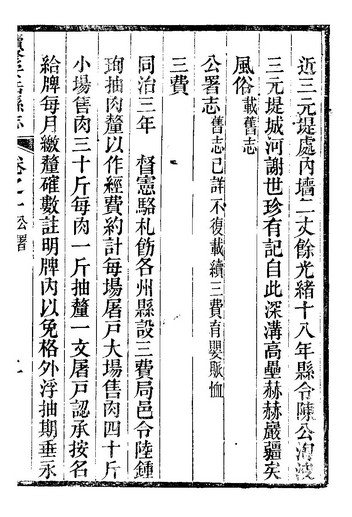 近三元堤處內墻二丈餘光緒十八年縣令陳公洵浚
三元堤城河謝世珍有記自此深溝高壘赫赫嚴疆矣
風俗 載舊志
公署志 舊志已詳不復載續三費育嬰賑恤
三費
同治三年　督憲駱札飭各州縣設三費局邑令陸鍾
珣抽肉釐以作經費約計每場屠戸大場售肉四十斤
小場售肉三十斤每肉一斤抽釐一文屠戸認承按名
給牌每月繳釐確數註明牌內以免格外浮抽期垂永
縣志 卷之一 公署